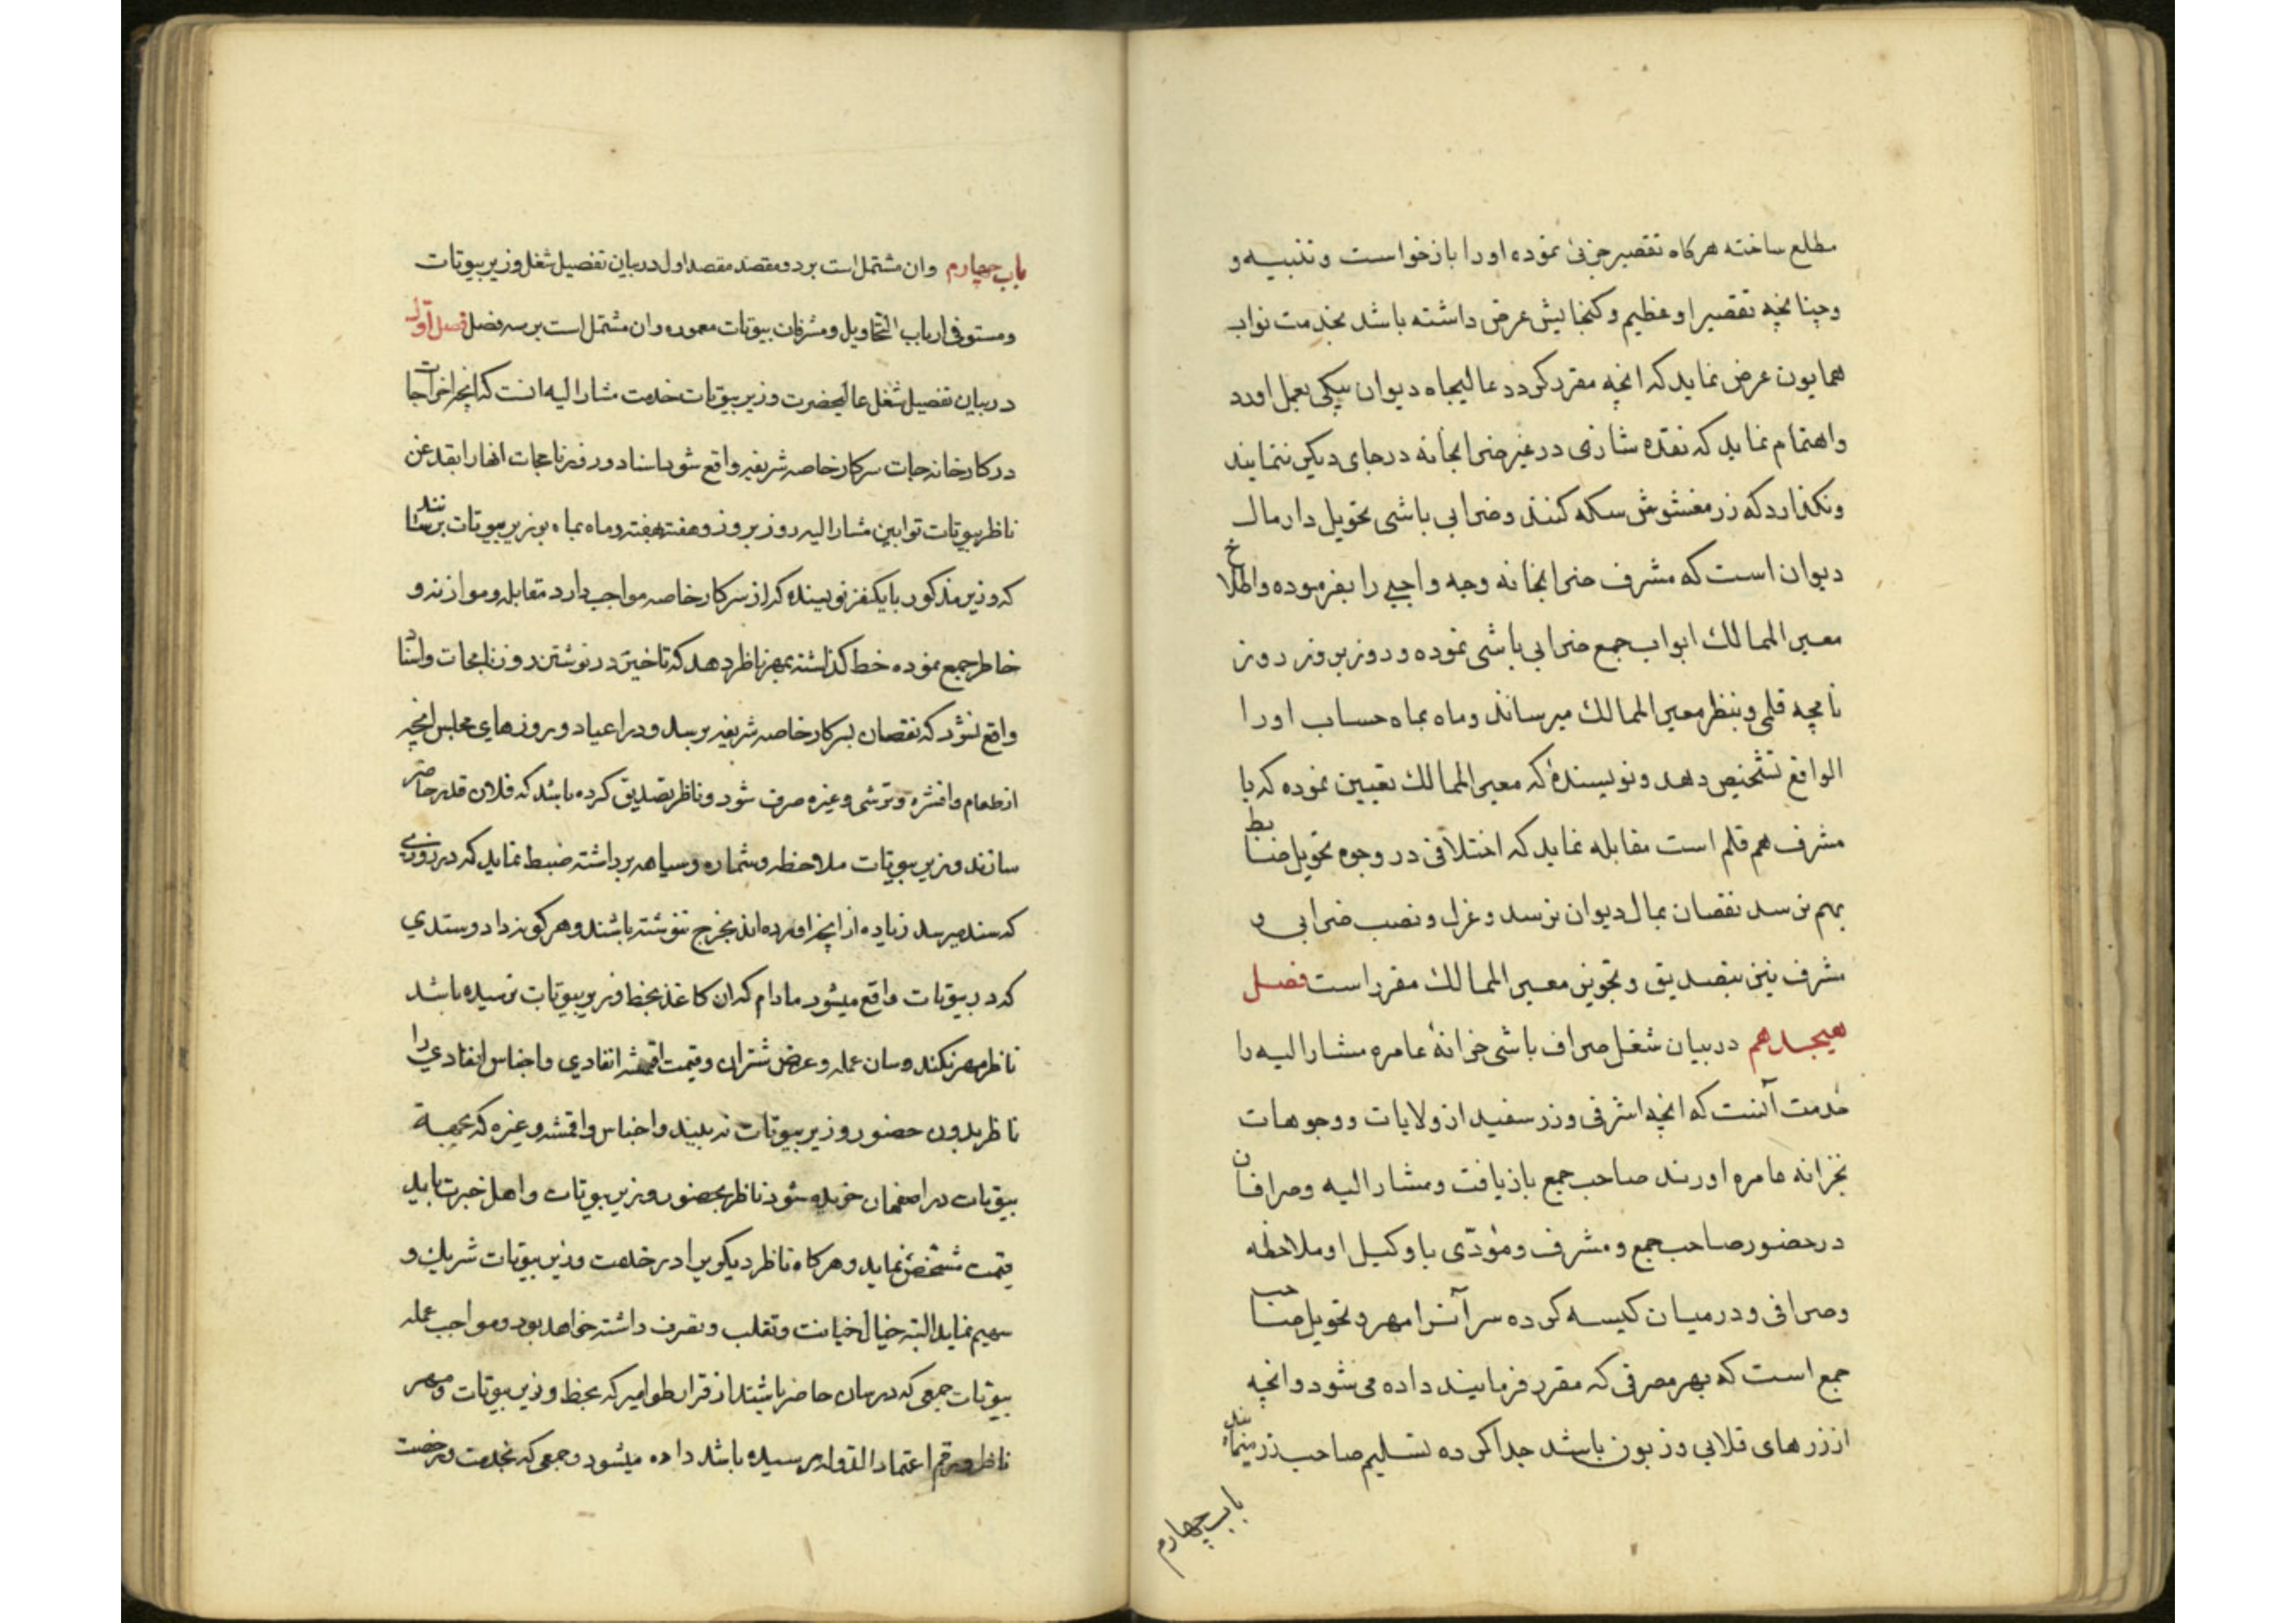 مطلع ساخته هرکاه تقصیر جزئی نموده اورا بازخواست و تنبیه و
وچنانچه تقصیر او عظیم وکنجایش عرض داشته باشد بخدمت نواب
همایون عرض نماید که انچه مقرر کردد عالیجاه دیوان بیکی بعمل اورد
واهتمام نماید که نقده شاری در غیر ضرابخانه درجای دیکر ننمایند
ونکذارد که زر مغشوش سکه کنند وضرابی باشی تحویلدار مال
دیوان است که مشرف ضرابخانه وجه واجبی را بفرموده واطلاع
معیر الممالك ابواب جمع ضرابی باشی نموده و روز بروز روز
نامچه قلمی وبنظر معیر الممالك میرساند وماه بماه حساب اورا
الواقع تشخیص دهد ونویسندهٔ که معیر الممالك تعیین نموده که با
مشرف هم قلم است مقابله نماید که اختلافی در وجوه تحویل ضابط
بهم نرسد نقصان بمال دیوان نرسد وعزل ونصب ضرابی و
مشرف نیز بتصدیق وتجویز معیر الممالك مقرر است فصل
هیجدهم در بیان شغل صراف باشی خزانهٔ عامره مشار الیه را
خدمت آنست که انچه اشرفی وزر سفید از ولایات ووجوهات
بخزانه عامره اورند صاحب جمع بازیافت ومشار الیه وصرافان
درحضور صاحب جمع و مشرف ومؤدّی با وکیل او ملاحظه
وصرافی ودرمیان کیسه کرده سر آنرا مهر و تحویل صاحب
جمع است که بهر مصرفی که مقرر فرمایند داده می شود وانچه
اززرهای قلابی وزبون باشد جدا کرده تسلیم صاحب زر مینمایند
باب چهارم
باب چهارم وان مشتمل است بر دو مقصد مقصد اول در بیان تفصیل شغل وزیر بیوتات
ومستوفی ارباب التحاویل ومشرفان بیوتات معموره وان مشتمل است بر سه فصل فصل اول
در بیان تفصیل شغل عالیحضرت وزیر بیوتات خدمت مشار الیه انست که انچه اخراجات
در کارخانه جات سرکار خاصه شریفه واقع شود اسناد و روزنامجات انها را بقدغن
ناظر بیوتات توابین مشار الیه روز بروز و هفته بهفته وماه بماه بوزیر بیوتات برسانند
که وزیر مذکور با یکنفر نویسنده که از سرکار خاصه مواجب دارد مقابله وموازنه و
خاطر جمع نموده خط کذاشته بمهر ناظر دهد که تاخیر در نوشتن روزنامجات واسناد
واقع نشود که نقصان بسرکار خاصه شریفه برسد ودر اعیاد و روزهای مجلس انچه
از طعام وافشره وترشی وغیره صرف شود وناظر تصدیق کرده باشد که فلان قدر حاضر
سازند وزیر بیوتات ملاحظه وشماره وسیاهه برداشته ضبط نماید که در روزی
که سند میرسد زیاده از انچه اورده اند بخرج ننوشته باشند وهر کونه داد وستدی
که در بیوتات واقع میشود مادام که ان کاغذ بخط وزیر بیوتات نرسیده باشد
ناظر مهر نکند وسان عمله وعرض شتران وقیمت اقمشه انفادی واجناس انفادی را
ناظر بدون حضور وزیر بیوتات نه بیند واجناس واقمشه وغیره که بجهة
بیوتات در اصفهان خریده شود ناظر بحضور وزیر بیوتات واهل خبرت باید
قیمت مشخص نماید وهر کاه ناظر دیکریرا در خدمت وزیر بیوتات شریك و
سهیم نماید البته خیال خیانت وتقلب وتصرف داشته خواهد بود ومواجب عمله
بیوتات جمعی که در سان حاضر باشند از قرار طوامیر که بخط وزیر بیوتات ومهر
ناظر ورقم اعتماد الدوله رسیده باشد داده میشود وجمعی که بخدمت ورخصت